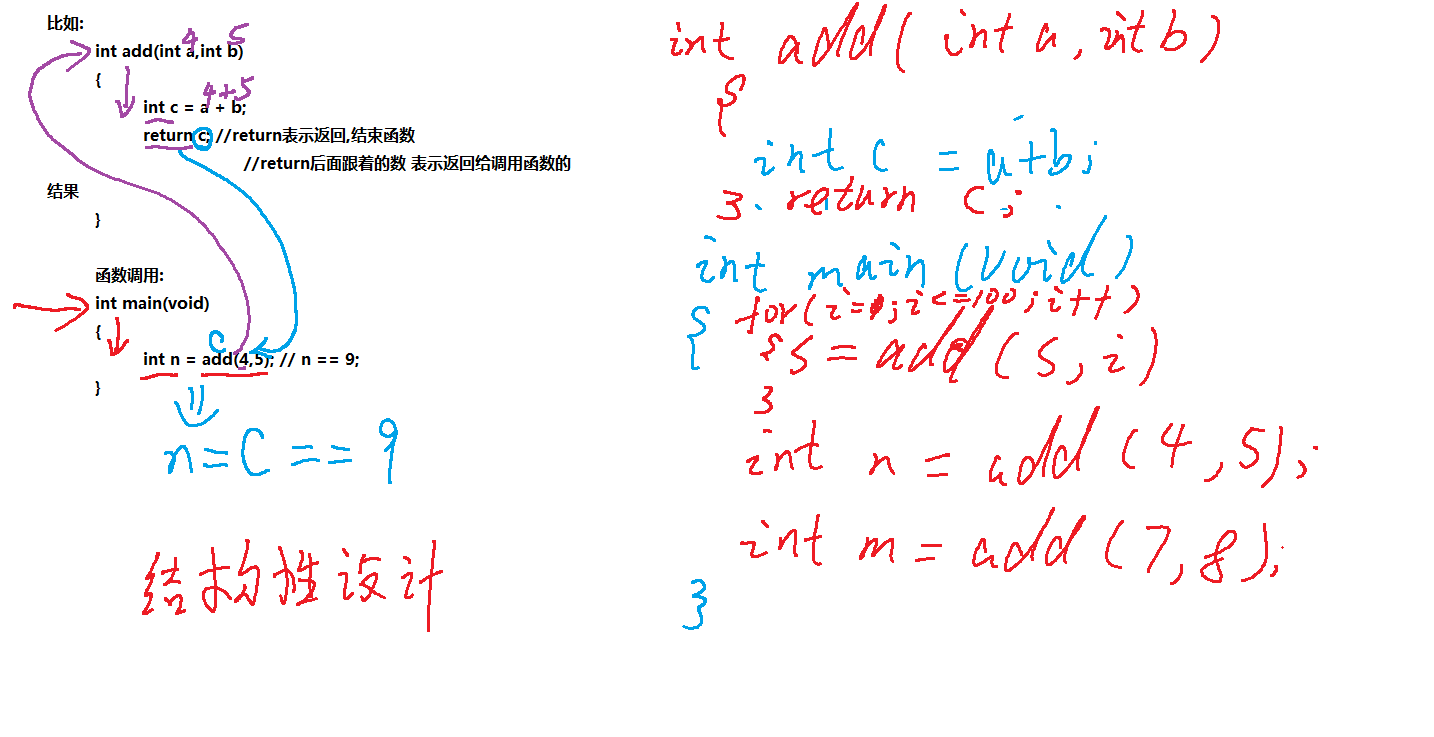 比如:
int add(int a,int b)
4 5
{
int c = a + b;
4+5
return c; //return表示返回,结束函数
//return后面跟着的数 表示返回给调用函数的
结果
}
函数调用:
int main(void)
{
C
int n = add(4,5); // n == 9;
}
n=C==9
结构性设计
int add(int a,int b)
{
int c = a+b;
} return c;
int main(void)
{ for(i=1;i<=100;i++)
{s=add(s,i)
}
int n=add(4,5);
int m=add(7,8);
}